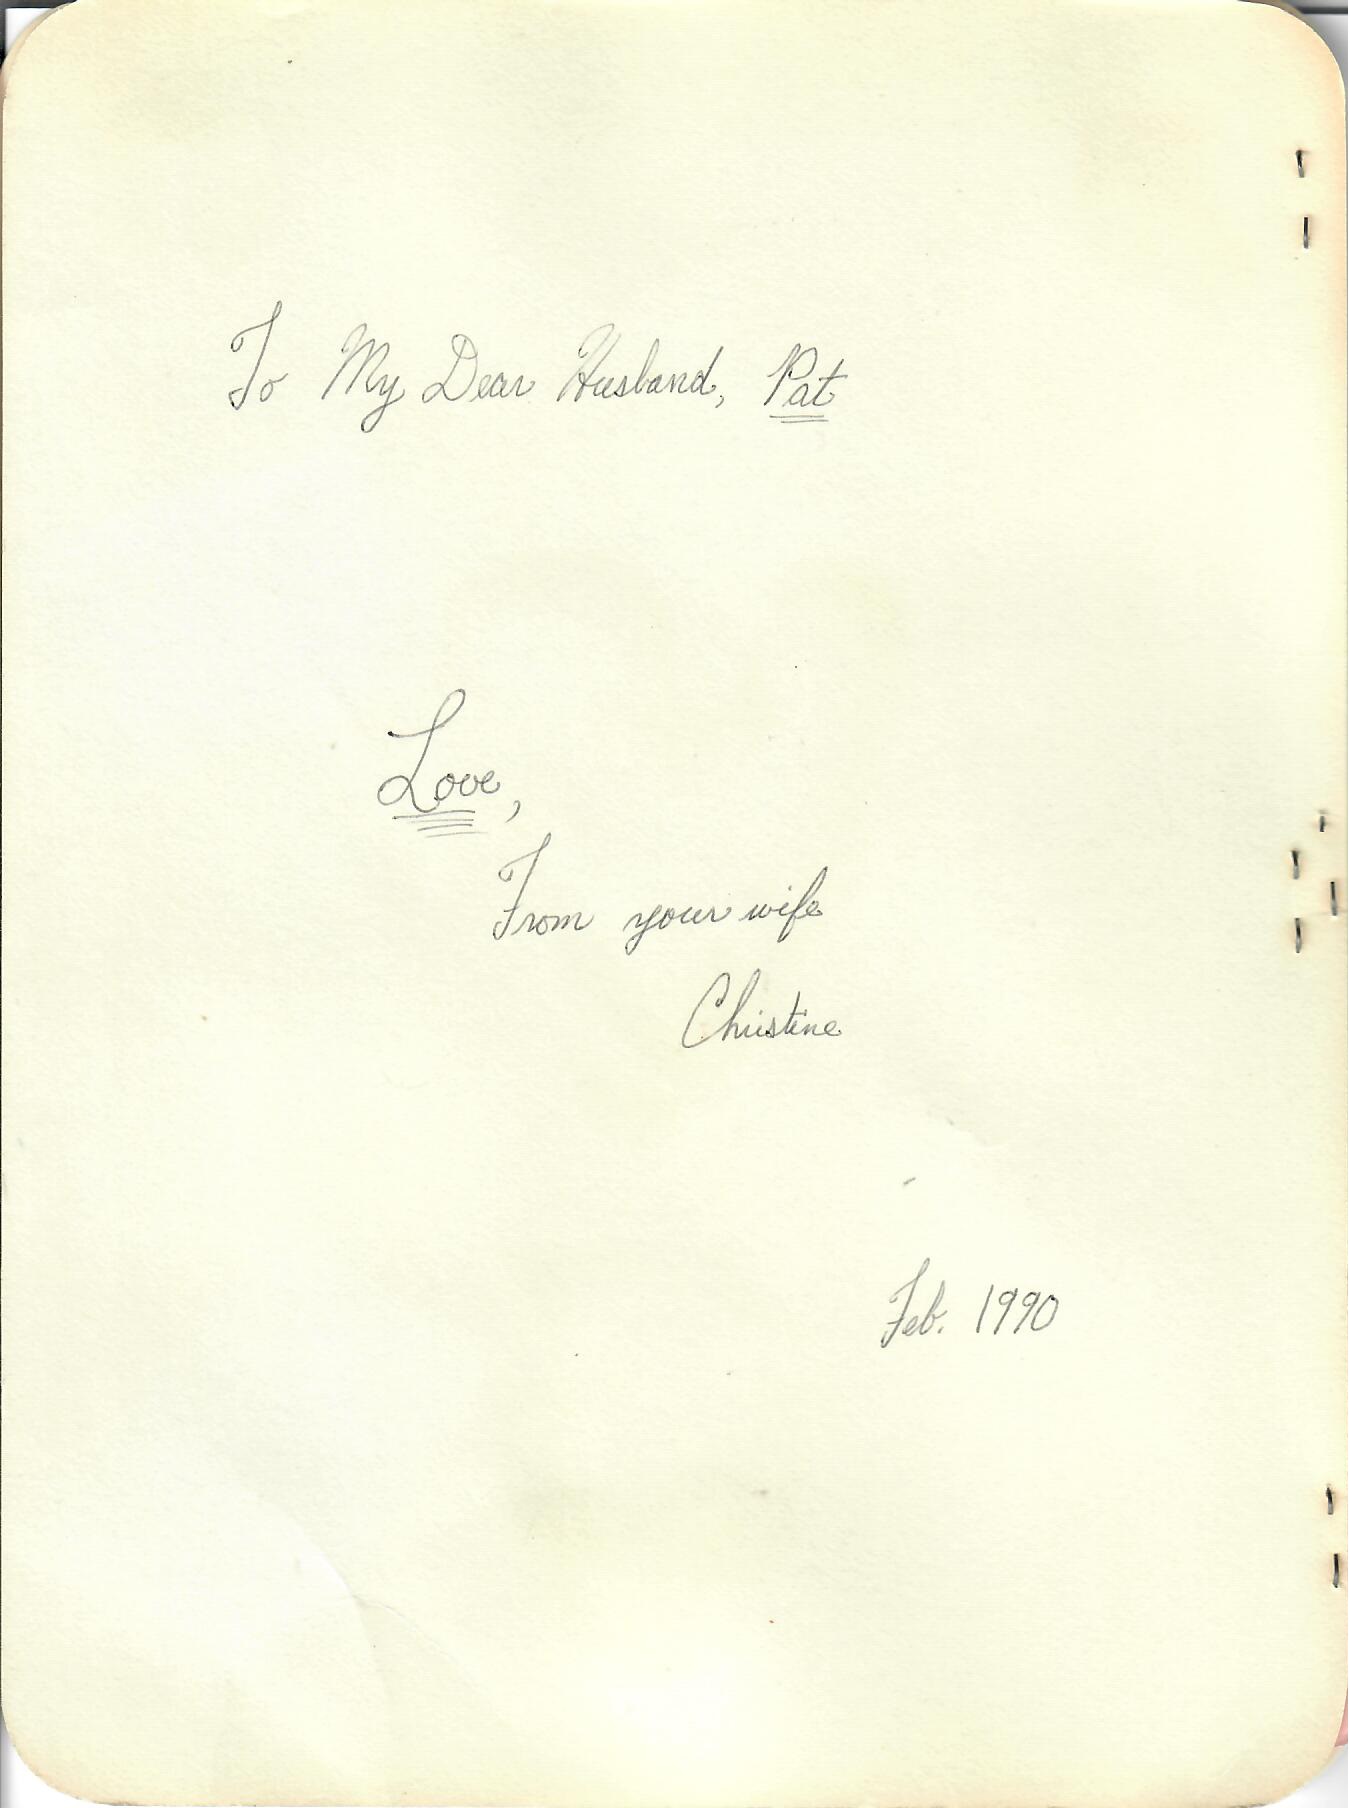 To My Dear Husband, Pat
Love,
From your wife
Christine
Feb. 1990